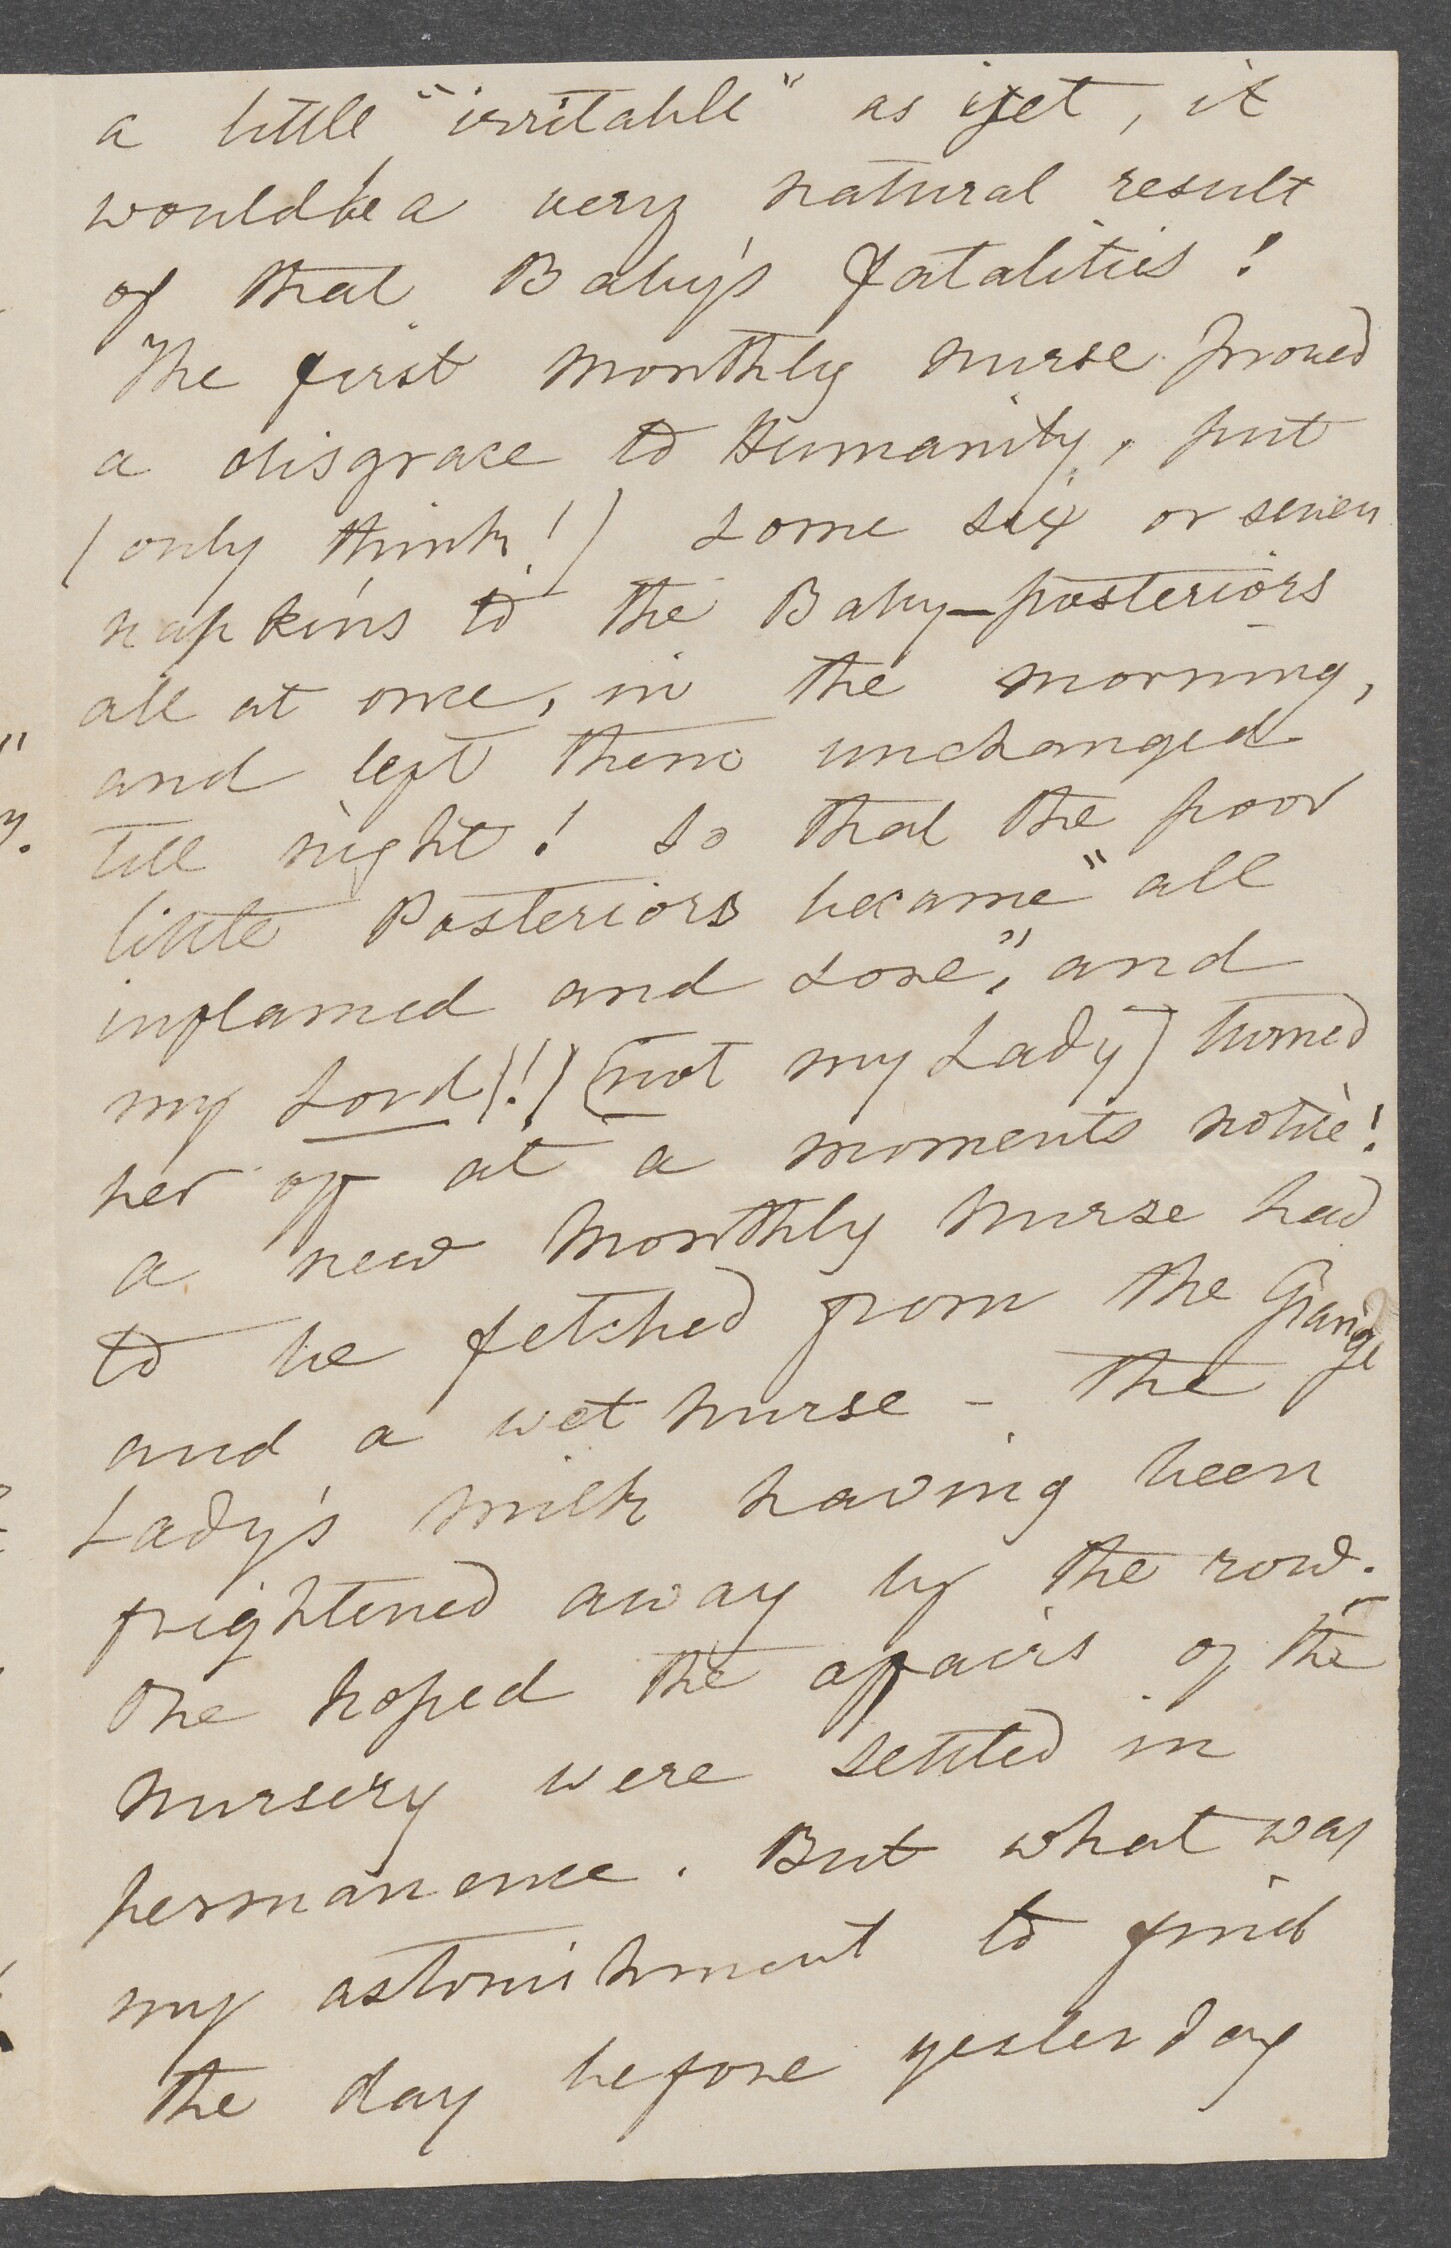 a little "irritable" as yet, it
would be a very natural result
of that Baby's fatalities!
The first monthly nurse proved
a disgrace to Humanity, put
(only think!) some six or seven
napkins to the Baby-posteriors
all at once, in the morning,
and left them unchanged
till night! so that the poor
little Posteriors became "all
inflamed and sore", and
my Lord (!) (not my Lady) turned
her off at a moments notice!
a new monthly nurse had
to be fetched from the Grange
and a wet nurse - the
Lady's milk having been
frightened away by the row.
One hoped the affairs of the
nursery were settled in
permanence. But what was
my astonishment to find
the day before yesterday